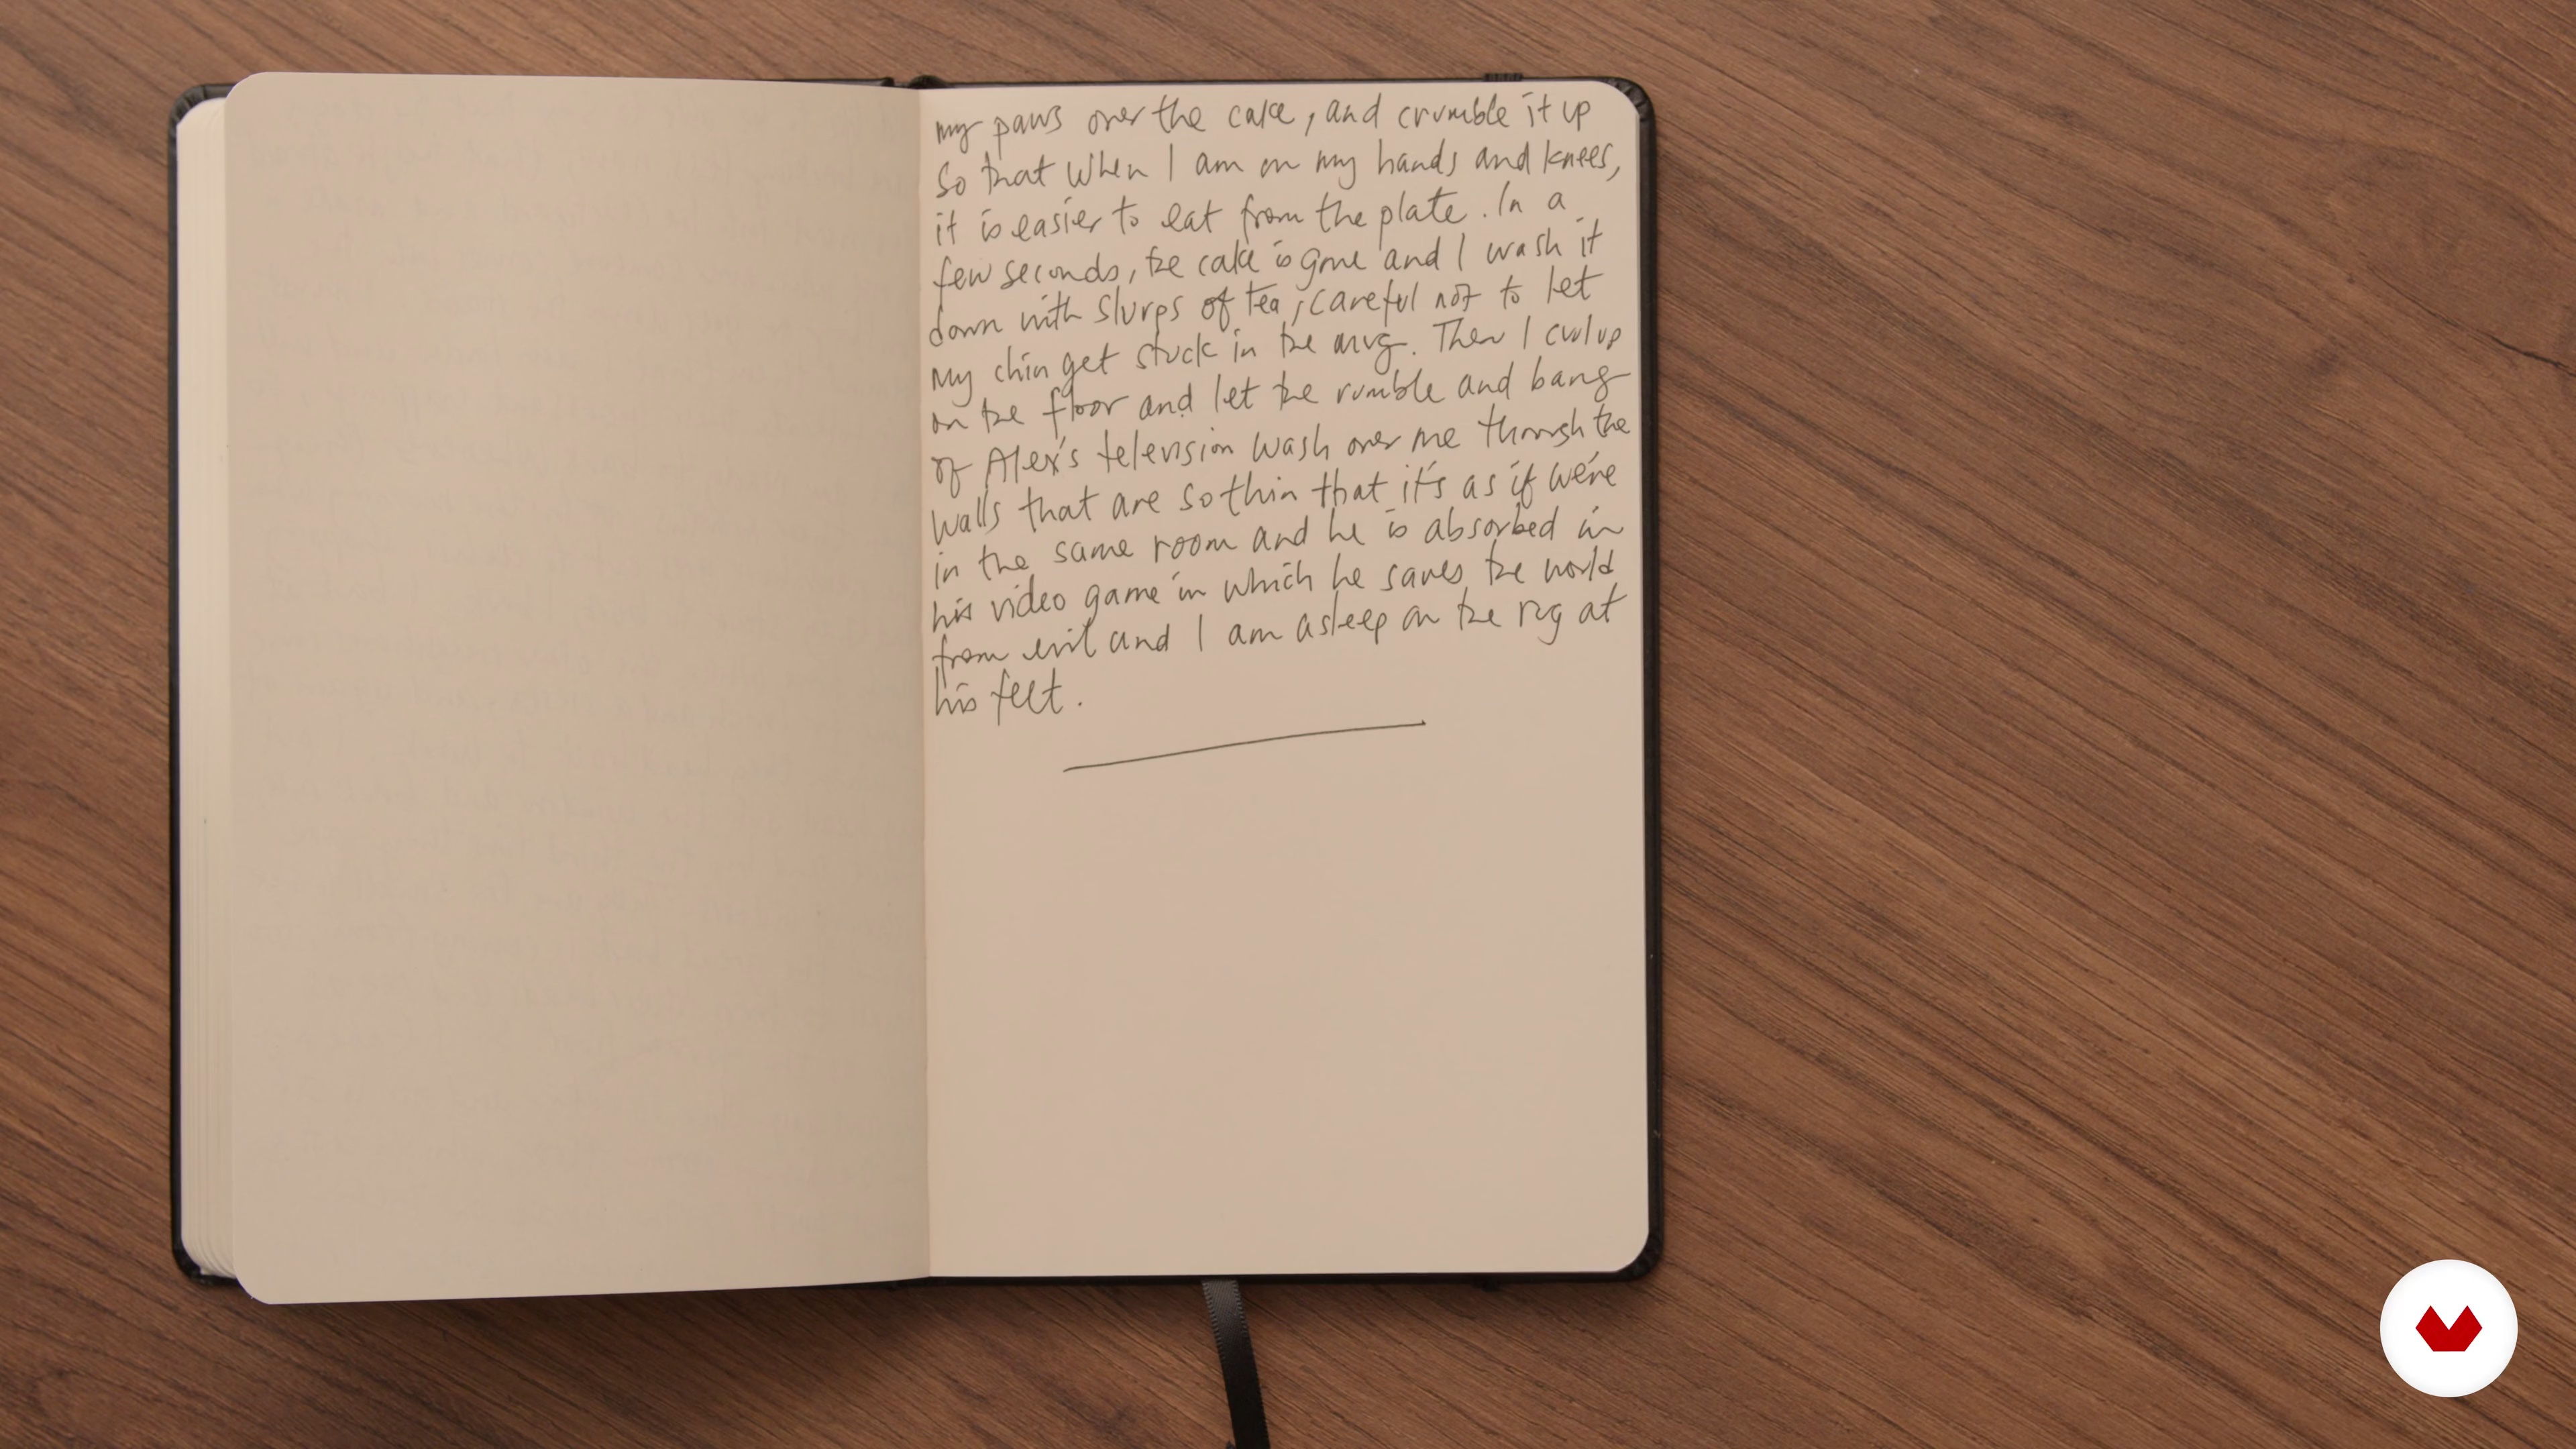 my paws over the cake, and crumble it up
so that when I am on my hands and knees,
it is easier to eat from the plate. In a
few seconds, the cake is gone and I wash it
down with slurps of tea, careful not to let
my chin get stuck in the mug. Then I curl up
on the floor and let the rumble and bang
of Alex's television wash over me through the
walls that are so thin that it's as if we're
in the same room and he is absorbed in
his video game in which he saves the world
from evil and I am asleep on the rug at
his feet.